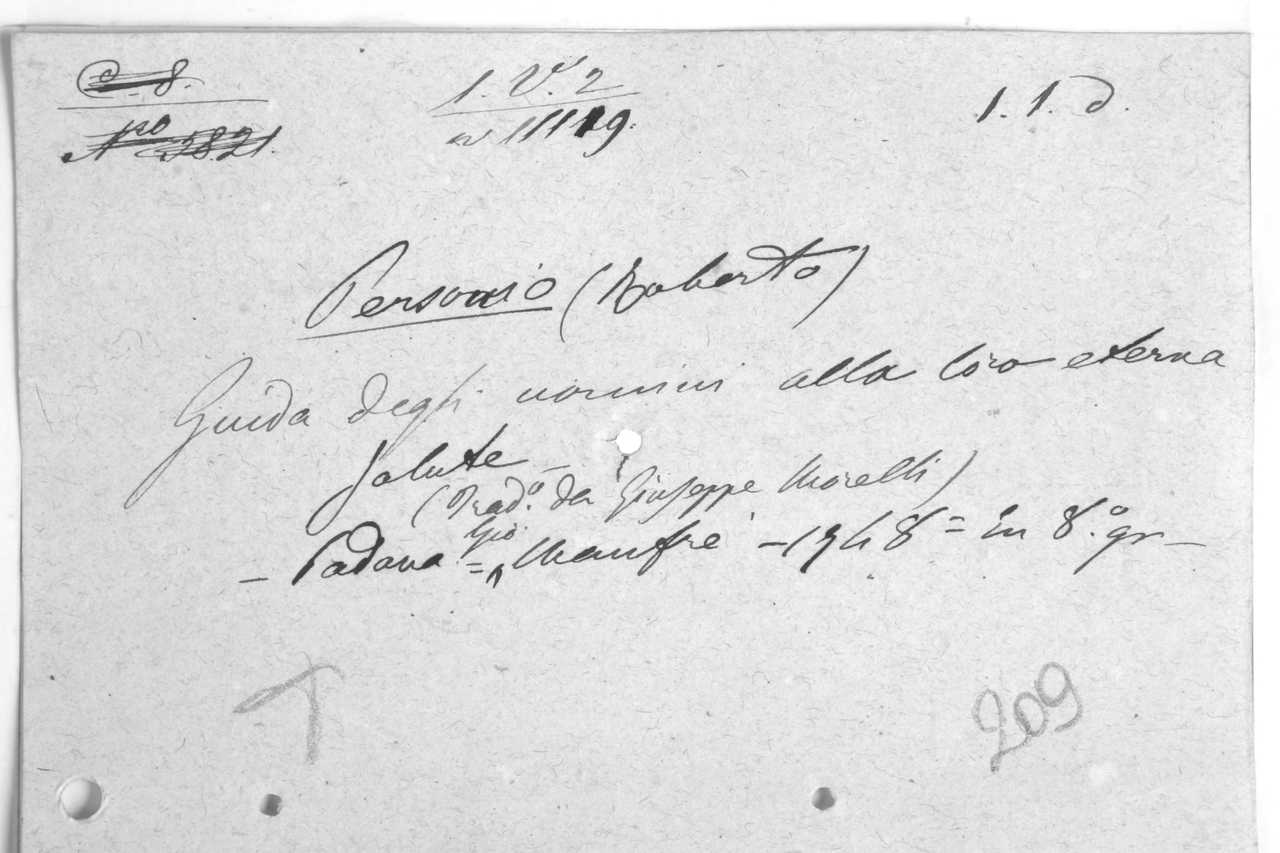 C. 8.
Nro 2821.
1. V. 2
11119.
1. 1. d.
Personio (Roberto)
Guida degli uomini alla loro eterna
salute –
(Trad.e da Giuseppe Morelli)
– Padova = Gio: Manfrè – 1748 = in 8.o gr –
T
209